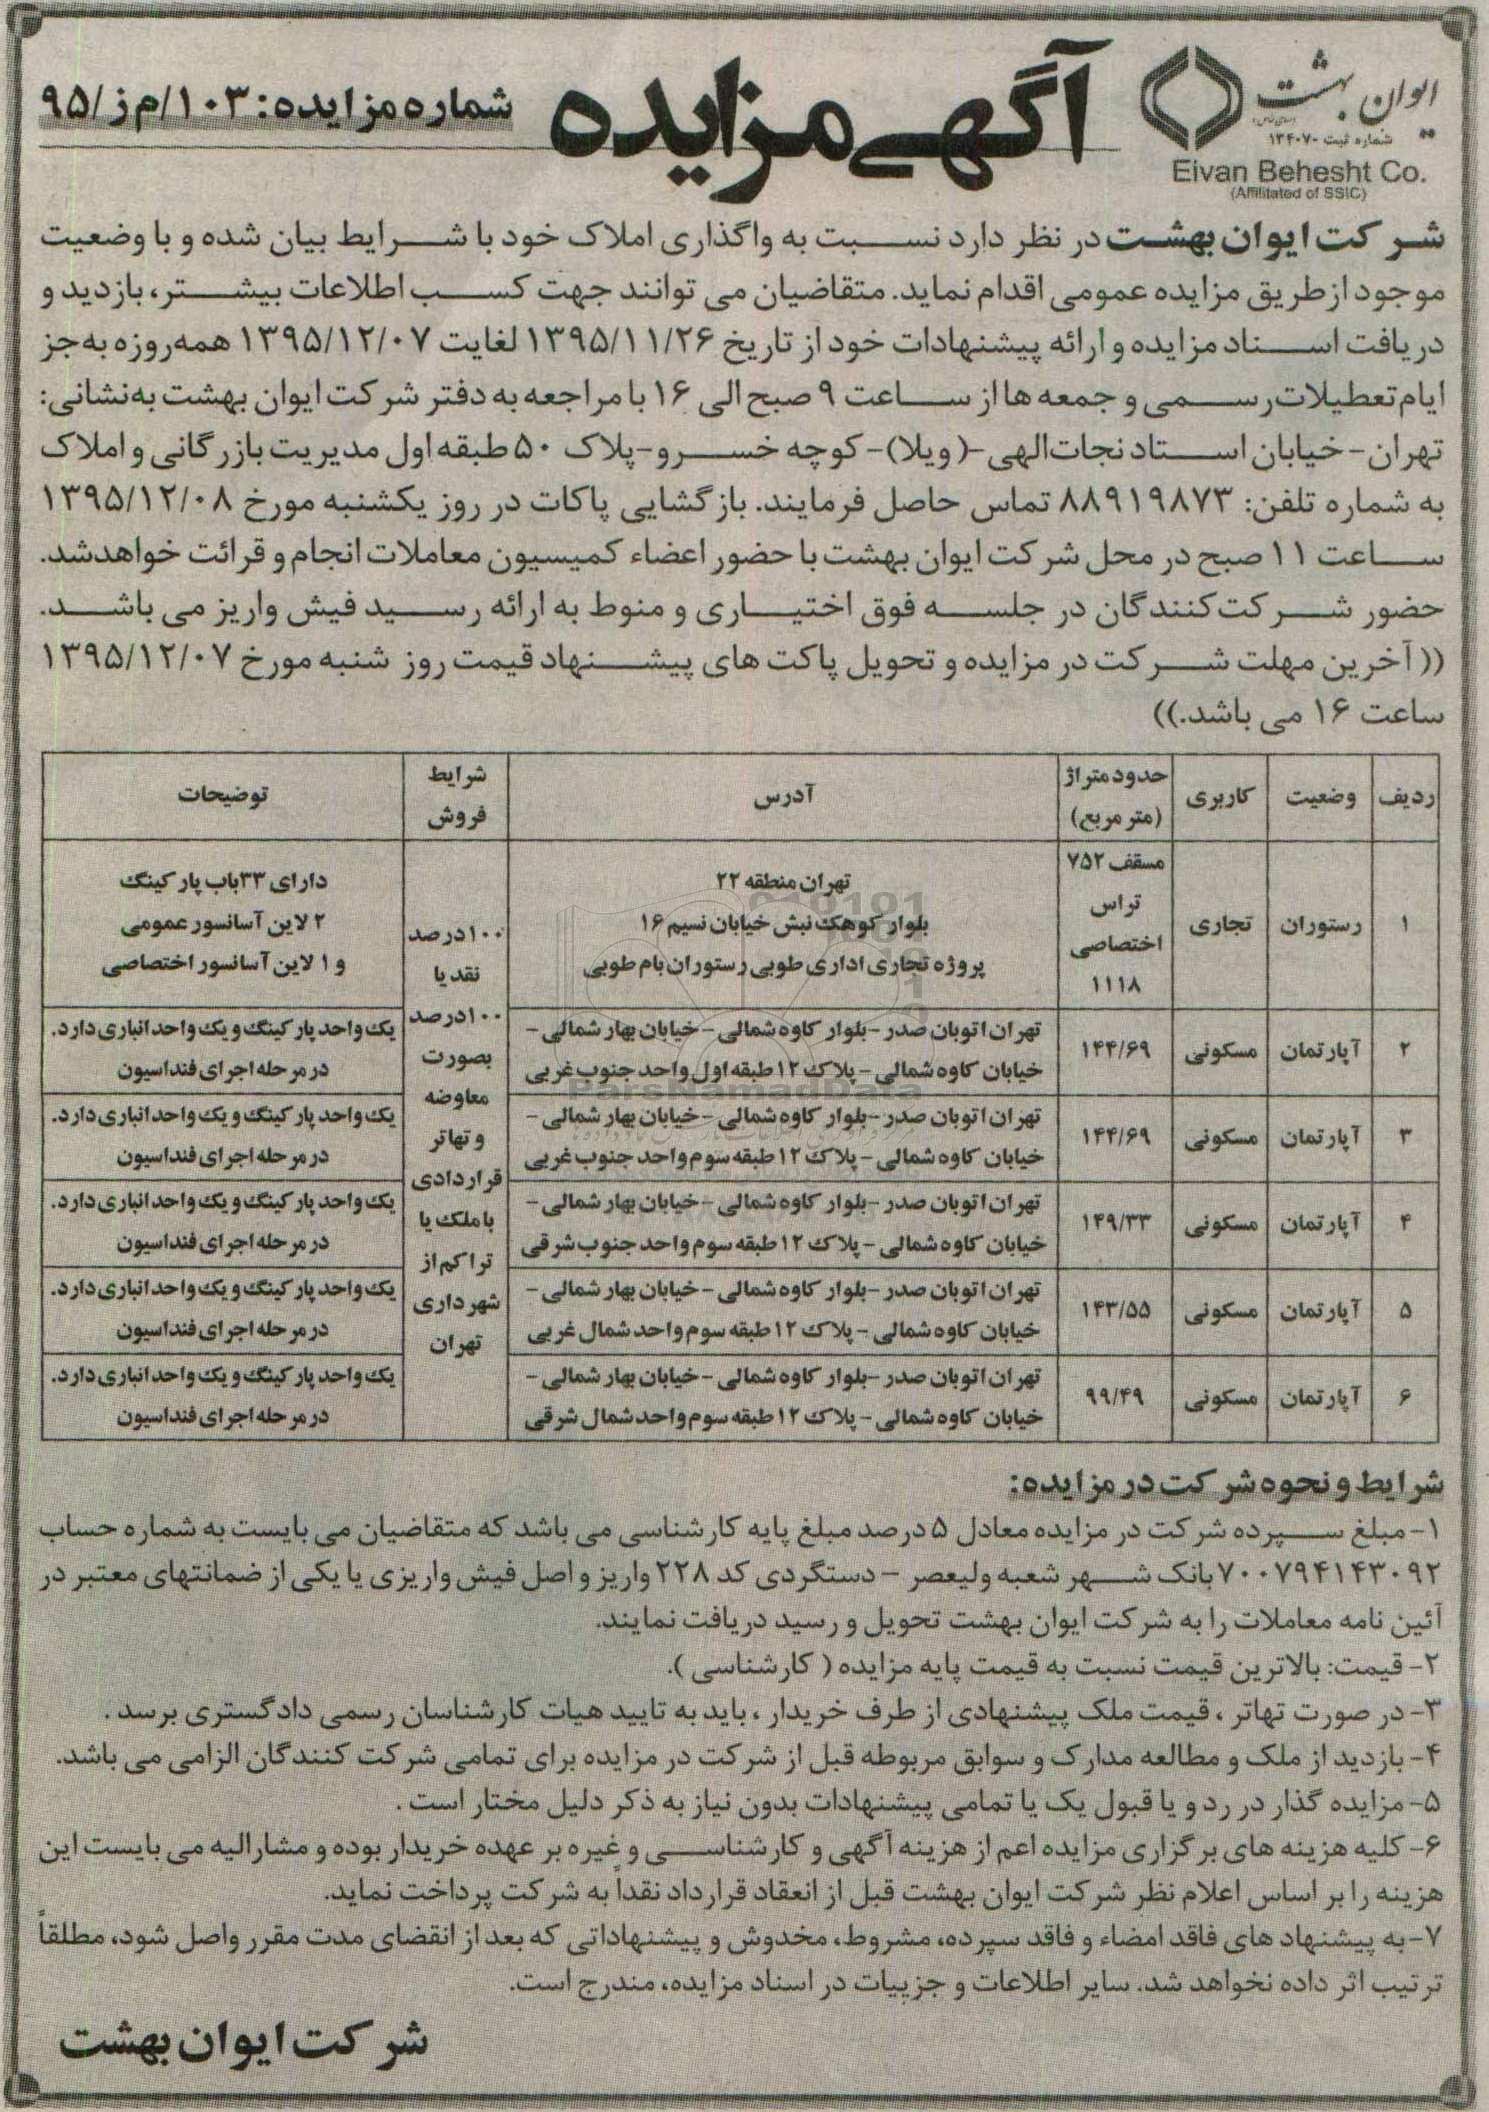 ایوان بهشت
شماره ثبت ۱۳۴۰۷۰
Eivan Behesht Co.
(Affilitated of SSIC)
آگهی مزایده
شماره مزایده: ۱۰۳/م ز/۹۵
شرکت ایوان بهشت در نظر دارد نسبت به واگذاری املاک خود با شرایط بیان شده و با وضعیت
موجود از طریق مزایده عمومی اقدام نماید. متقاضیان می توانند جهت کسب اطلاعات بیشتر، بازدید و
دریافت اسناد مزایده و ارائه پیشنهادات خود از تاریخ ۱۳۹۵/۱۱/۲۶ لغایت ۱۳۹۵/۱۲/۰۷ همه روزه به جز
ایام تعطیلات رسمی و جمعه ها از ساعت ۹ صبح الی ۱۶ با مراجعه به دفتر شرکت ایوان بهشت به نشانی:
تهران- خیابان استاد نجات الهی -(ویلا)- کوچه خسرو-پلاک ۵۰ طبقه اول مدیریت بازرگانی و املاک
به شماره تلفن: ۸۸۹۱۹۸۷۳ تماس حاصل فرمایند. بازگشایی پاکات در روز یکشنبه مورخ ۱۳۹۵/۱۲/۰۸
ساعت ۱۱ صبح در محل شرکت ایوان بهشت با حضور اعضاء کمیسیون معاملات انجام و قرائت خواهد شد.
حضور شرکت کنندگان در جلسه فوق اختیاری و منوط به ارائه رسید فیش واریز می باشد.
(( آخرین مهلت شرکت در مزایده و تحویل پاکت های پیشنهاد قیمت روز شنبه مورخ ۱۳۹۵/۱۲/۰۷
ساعت ۱۶ می باشد.))
ردیف وضعیت کاربری حدود متراژ (متر مربع) آدرس شرایط فروش توضیحات
۱ رستوران تجاری
مسقف ۷۵۲
تراس
اختصاصی
۱۱۱۸
تهران منطقه ۲۲
بلوار کوهک نبش خیابان نسیم ۱۶
پروژه تجاری اداری طوبی رستوران بام طوبی
۱۰۰ درصد
نقد یا
۱۰۰ درصد
بصورت
معاوضه
و تهاتر
قراردادی
با ملک یا
تراکم از
شهرداری
تهران
دارای ۳۳ باب پارکینگ
۲ لاین آسانسور عمومی
و ۱ لاین آسانسور اختصاصی
۲ آپارتمان مسکونی ۱۴۴/۶۹
تهران اتوبان صدر -بلوار کاوه شمالی - خیابان بهار شمالی -
خیابان کاوه شمالی - پلاک ۱۲ طبقه اول واحد جنوب غربی
یک واحد پارکینگ و یک واحد انباری دارد.
در مرحله اجرای فنداسیون
۳ آپارتمان مسکونی ۱۴۴/۶۹
تهران اتوبان صدر -بلوار کاوه شمالی - خیابان بهار شمالی -
خیابان کاوه شمالی - پلاک ۱۲ طبقه سوم واحد جنوب غربی
یک واحد پارکینگ و یک واحد انباری دارد.
در مرحله اجرای فنداسیون
۴ آپارتمان مسکونی ۱۴۹/۳۳
تهران اتوبان صدر -بلوار کاوه شمالی - خیابان بهار شمالی -
خیابان کاوه شمالی - پلاک ۱۲ طبقه سوم واحد جنوب شرقی
یک واحد پارکینگ و یک واحد انباری دارد.
در مرحله اجرای فنداسیون
۵ آپارتمان مسکونی ۱۴۳/۵۵
تهران اتوبان صدر -بلوار کاوه شمالی - خیابان بهار شمالی -
خیابان کاوه شمالی - پلاک ۱۲ طبقه سوم واحد شمال غربی
یک واحد پارکینگ و یک واحد انباری دارد.
در مرحله اجرای فنداسیون
۶ آپارتمان مسکونی ۹۹/۴۹
تهران اتوبان صدر -بلوار کاوه شمالی - خیابان بهار شمالی -
خیابان کاوه شمالی - پلاک ۱۲ طبقه سوم واحد شمال شرقی
یک واحد پارکینگ و یک واحد انباری دارد.
در مرحله اجرای فنداسیون
ParsNamadData
شرایط و نحوه شرکت در مزایده:
۱- مبلغ سپرده شرکت در مزایده معادل ۵ درصد مبلغ پایه کارشناسی می باشد که متقاضیان می بایست به شماره حساب
۷۰۰۷۹۴۱۴۳۰۹۲ بانک شهر شعبه ولیعصر - دستگردی کد ۲۲۸ واریز و اصل فیش واریزی یا یکی از ضمانتهای معتبر در
آئین نامه معاملات را به شرکت ایوان بهشت تحویل و رسید دریافت نمایند.
۲- قیمت: بالاترین قیمت نسبت به قیمت پایه مزایده ( کارشناسی ).
۳- در صورت تهاتر ، قیمت ملک پیشنهادی از طرف خریدار ، باید به تایید هیات کارشناسان رسمی دادگستری برسد .
۴- بازدید از ملک و مطالعه مدارک و سوابق مربوطه قبل از شرکت در مزایده برای تمامی شرکت کنندگان الزامی می باشد.
۵- مزایده گذار در رد و یا قبول یک یا تمامی پیشنهادات بدون نیاز به ذکر دلیل مختار است .
۶- کلیه هزینه های برگزاری مزایده اعم از هزینه آگهی و کارشناسی و غیره بر عهده خریدار بوده و مشارالیه می بایست این
هزینه را بر اساس اعلام نظر شرکت ایوان بهشت قبل از انعقاد قرارداد نقداً به شرکت پرداخت نماید.
۷- به پیشنهاد های فاقد امضاء و فاقد سپرده، مشروط، مخدوش و پیشنهاداتی که بعد از انقضای مدت مقرر واصل شود، مطلقاً
ترتیب اثر داده نخواهد شد. سایر اطلاعات و جزییات در اسناد مزایده، مندرج است.
شرکت ایوان بهشت